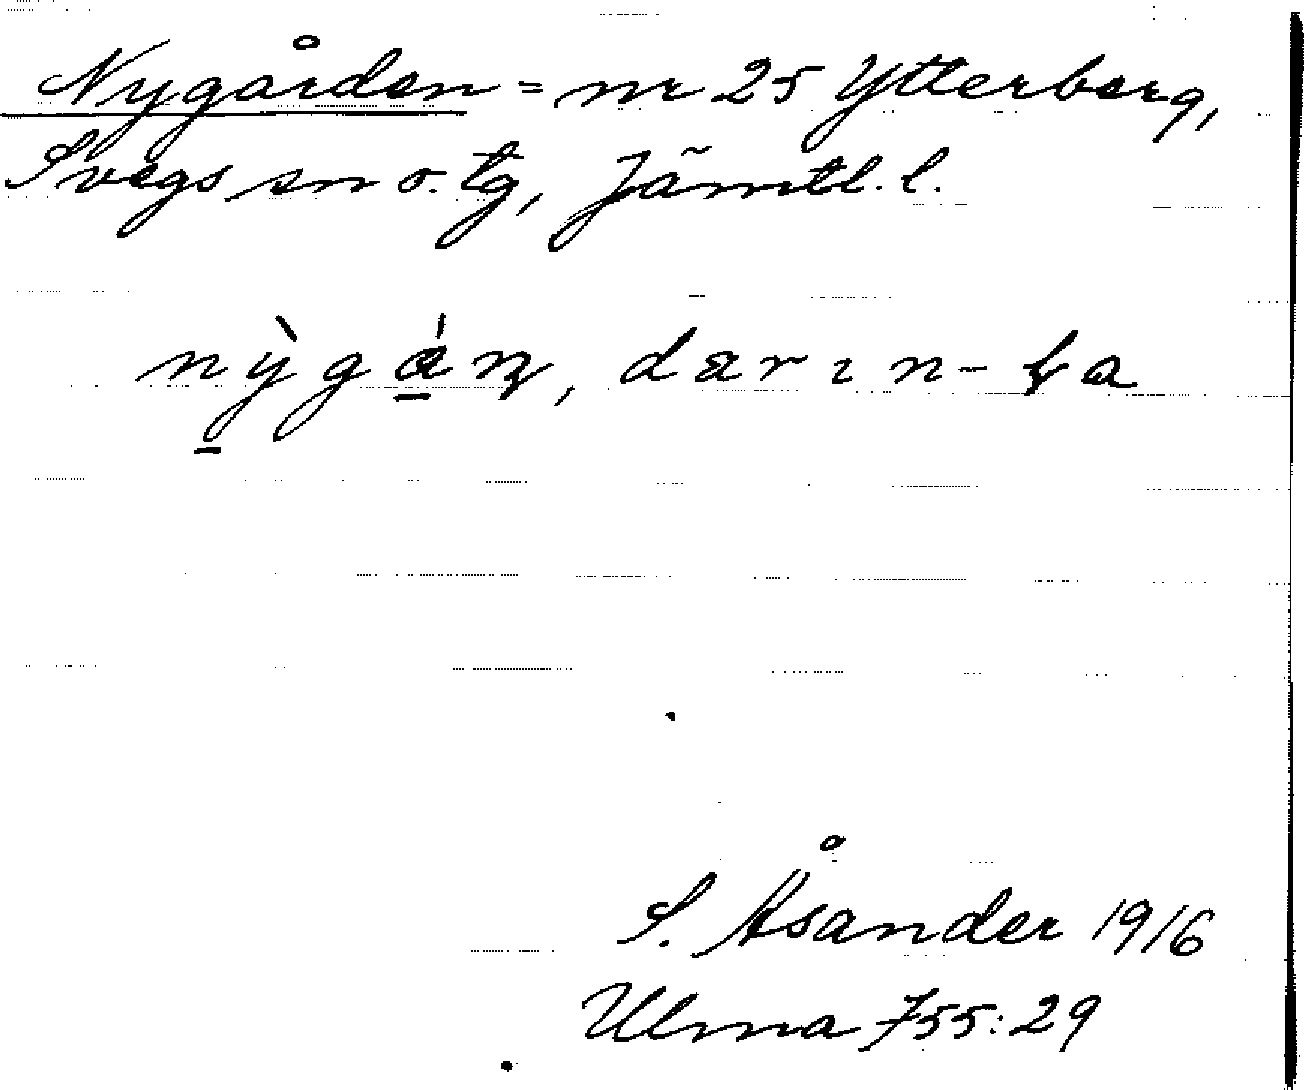 Nygården = nr 25 Ytterberg,
Svegs sn o. tg, Jämtl. l.
nỳgán,
S. Åsander 1916
Ulma 755:29